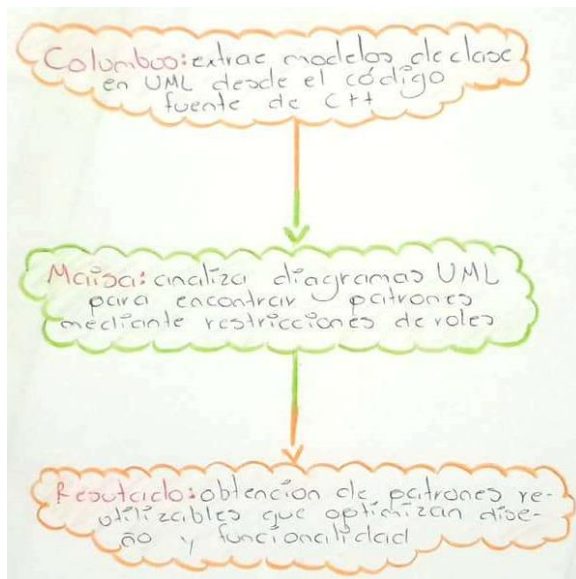 Columbus: extrae modelos de clase
en UML desde el código
fuente de C++
Maisa: analiza diagramas UML
para encontrar patrones
mediante restricciones de roles
Resutado: obtencion de patrones re-
utilizables que optimizan dise-
ño y funcionalidad